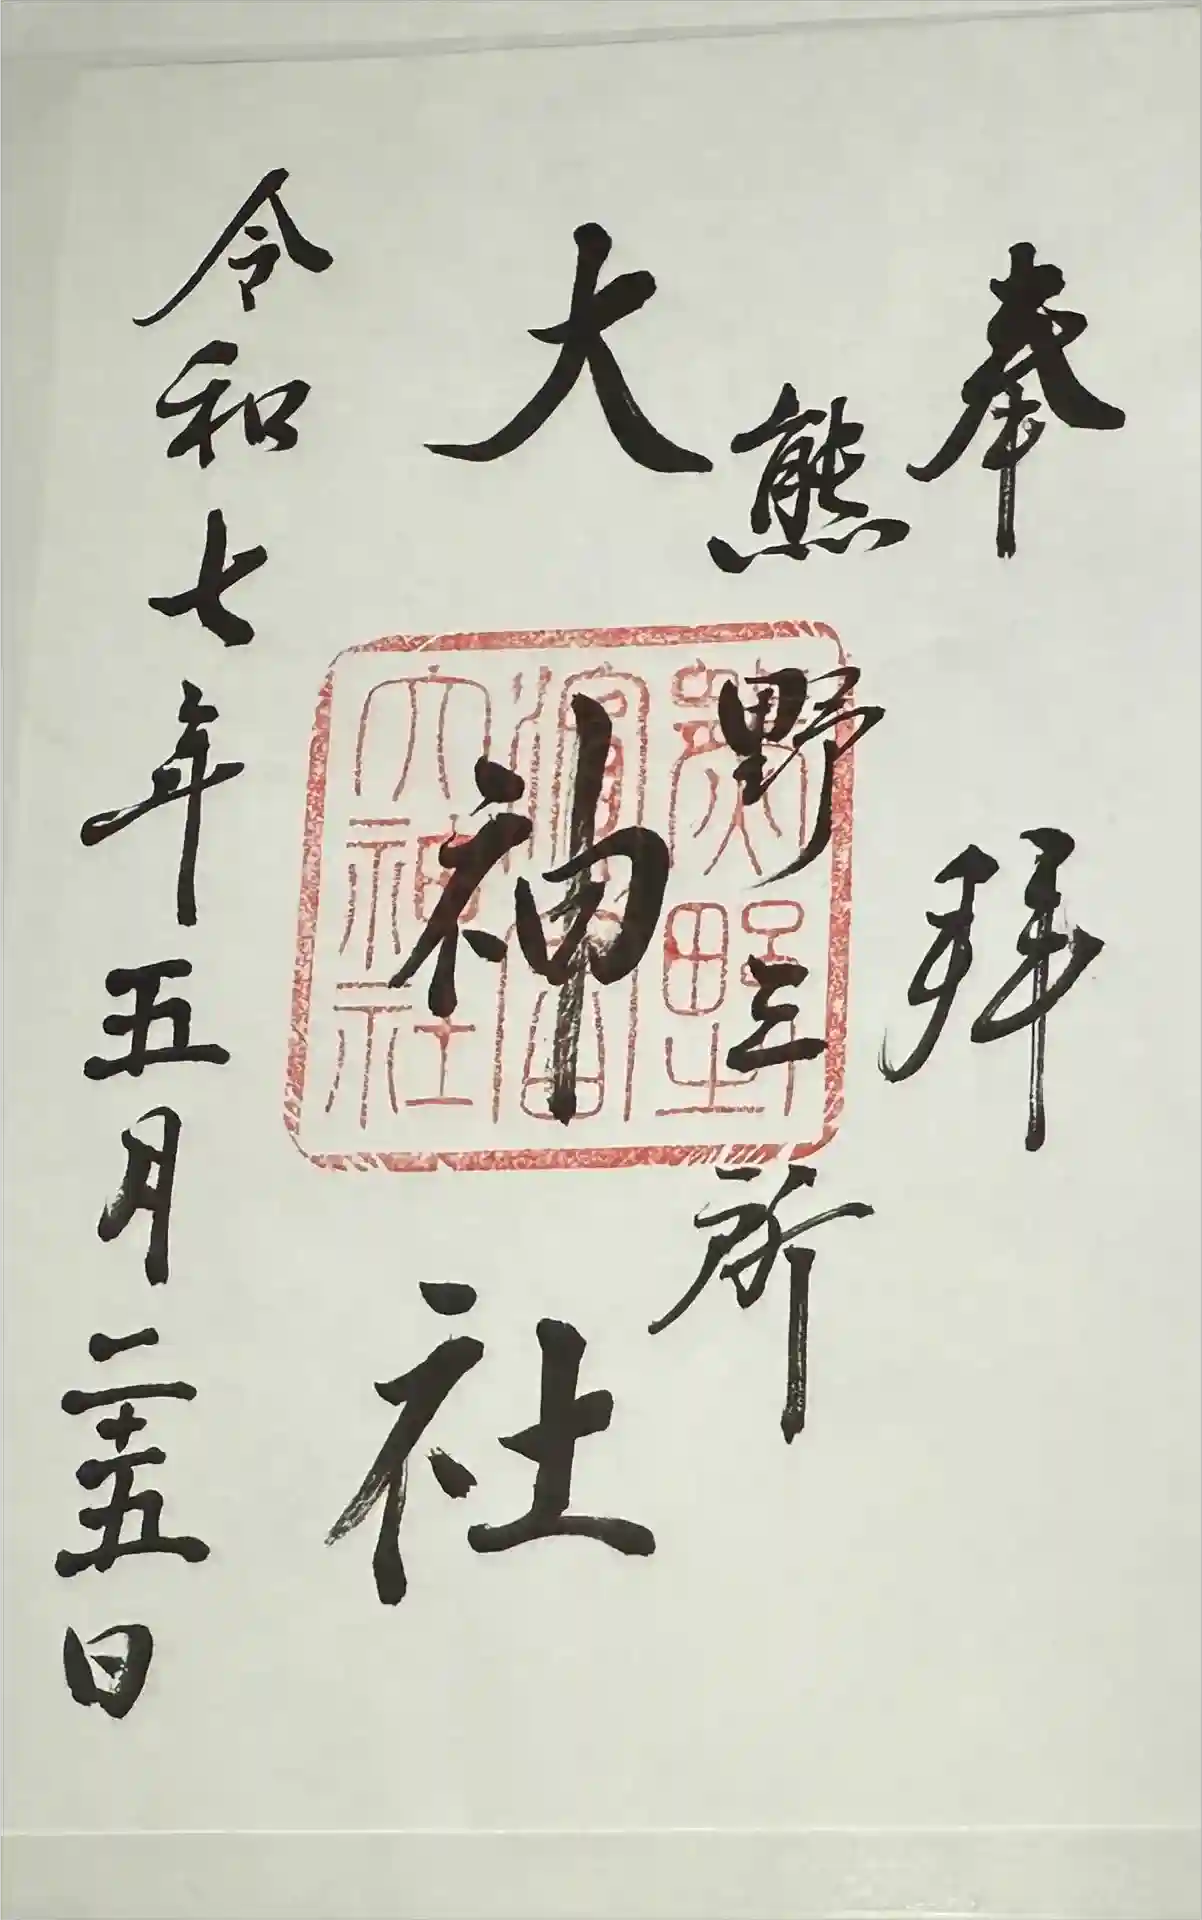 奉拝
熊野三所
大神社
令和七年五月二十五日
熊野
濱宮
大神社